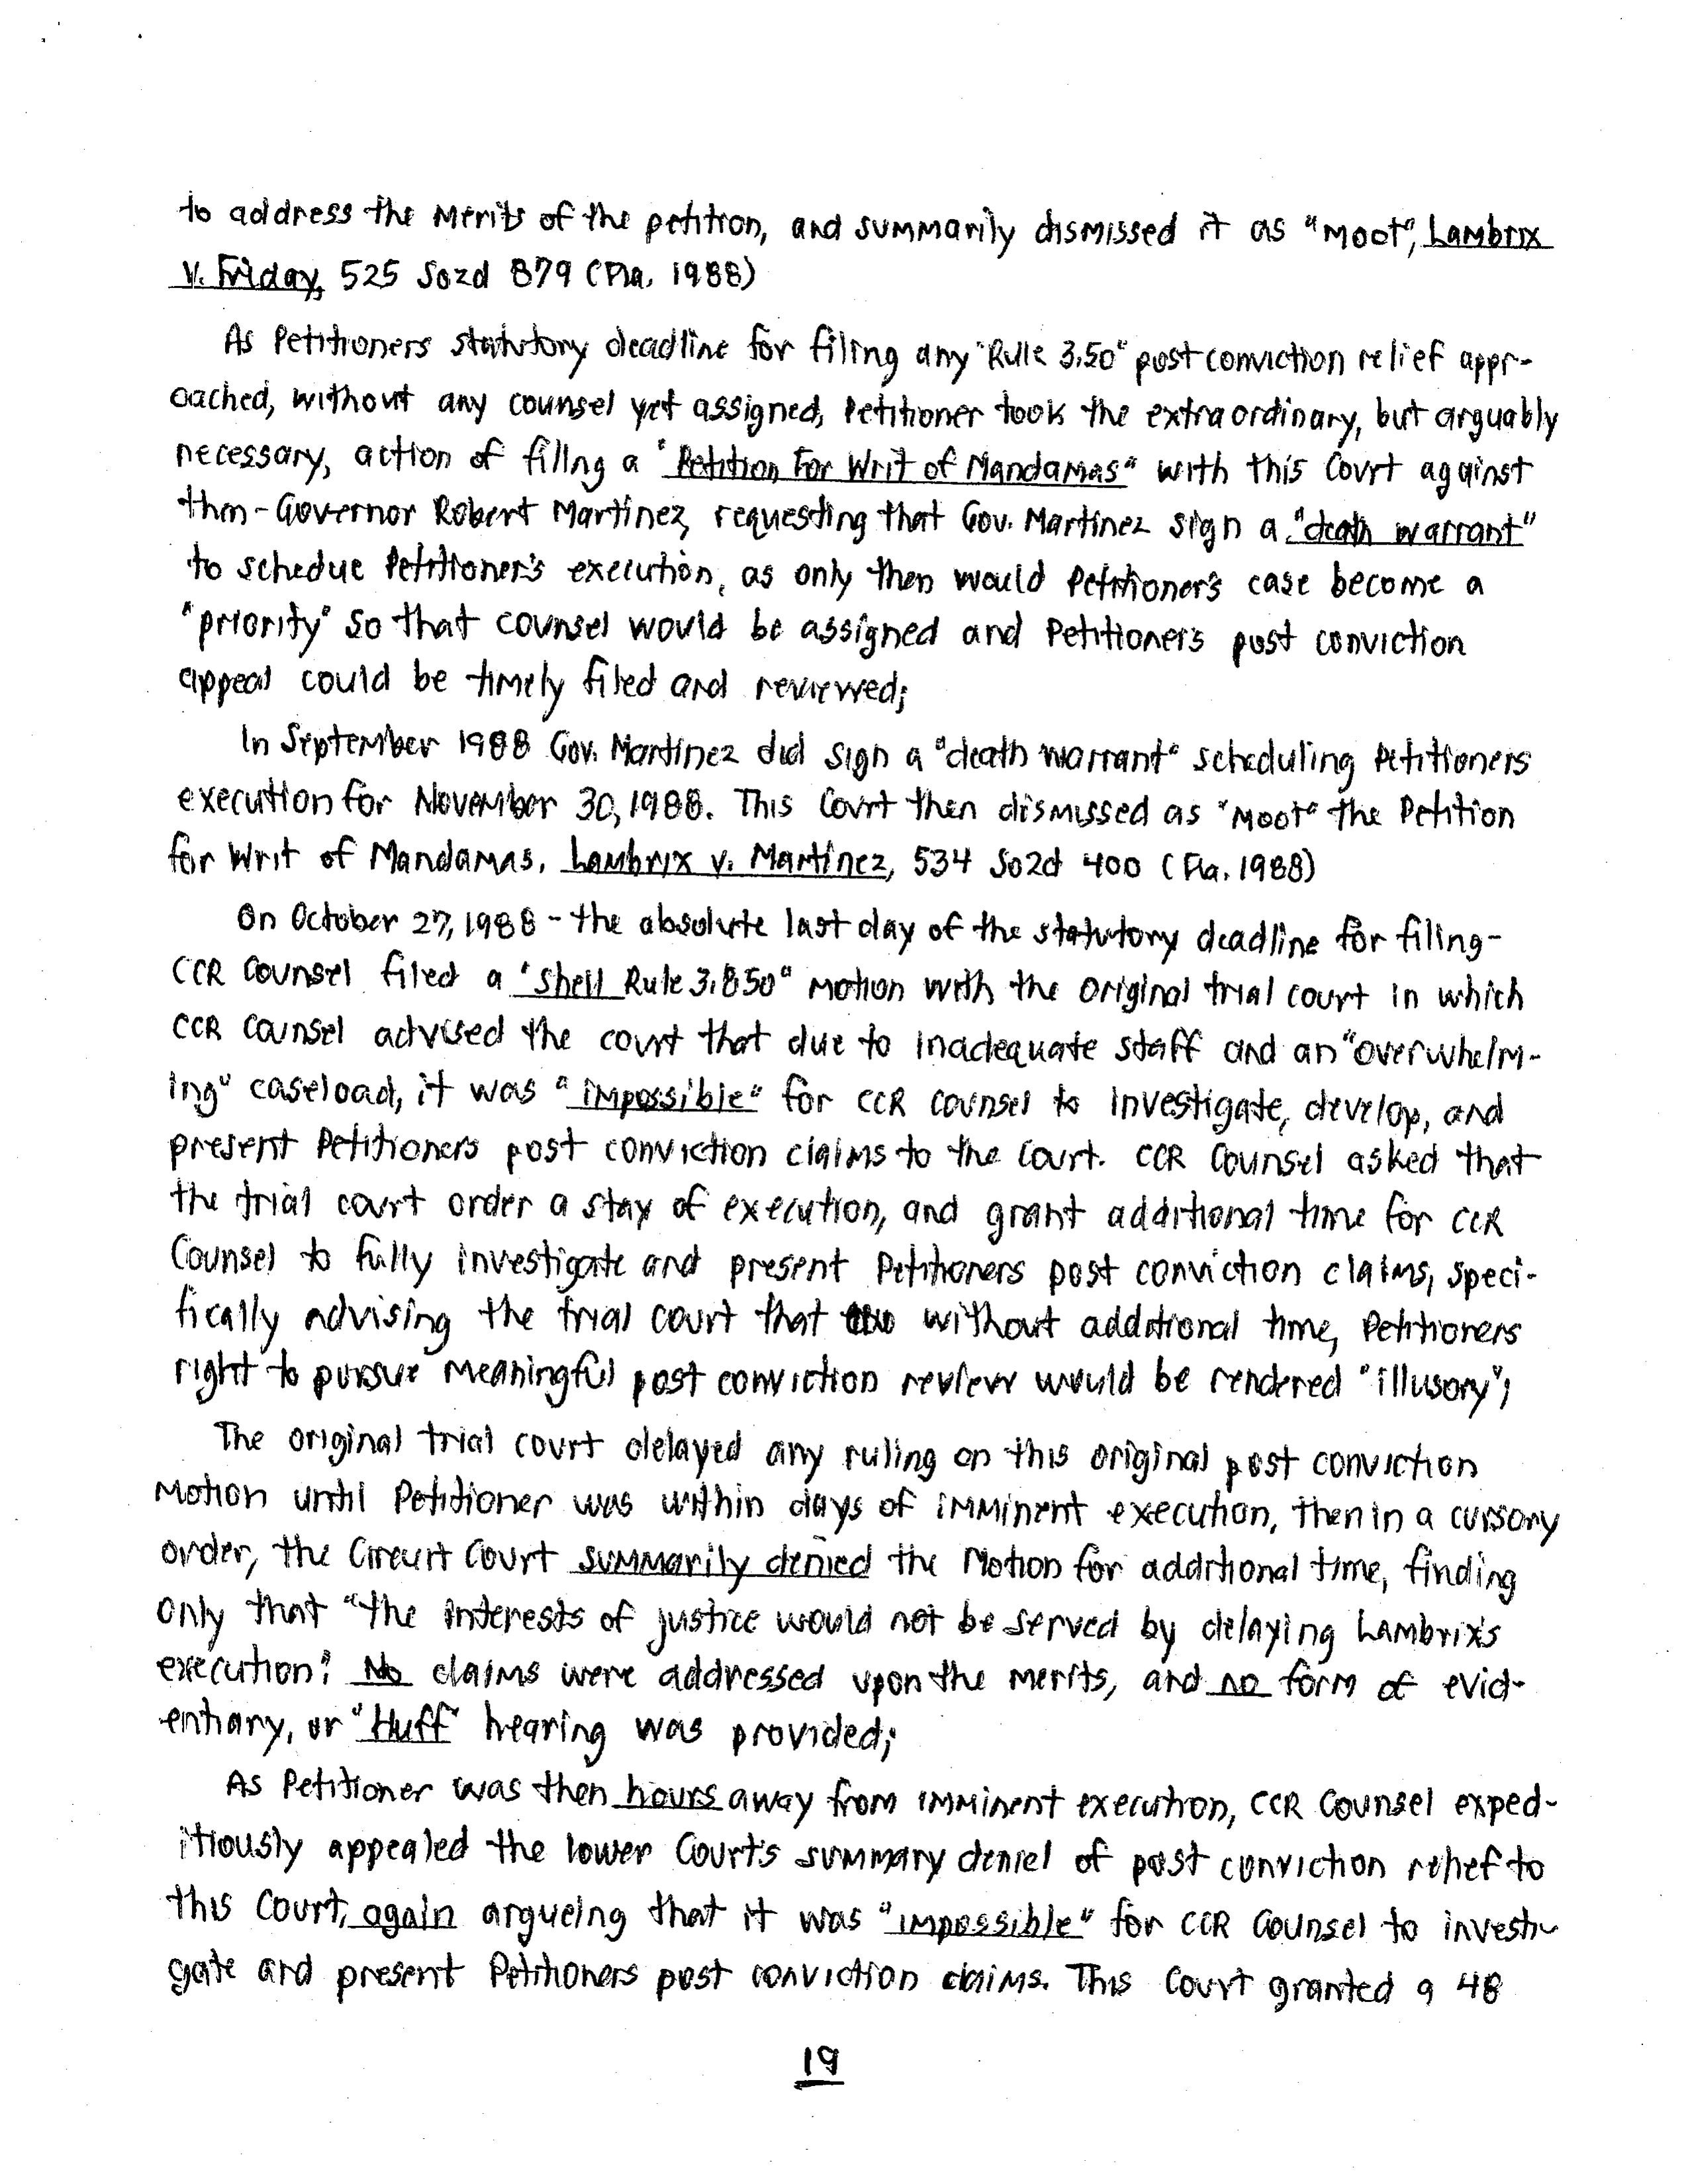 to address the merits of the petition, and summarily dismissed it as "moot", Lambrix
v. Friday, 525 So2d 879 (Fla. 1988)
As Petitioners statutory deadline for filing any "Rule 3.50" post conviction relief appr-
oached, without any counsel yet assigned, Petitioner took the extraordinary, but arguably
necessary, action of filing a "Petition For Writ of Mandamas" with this Court against
then-Governor Robert Martinez, requesting that Gov. Martinez sign a "death warrant"
to schedue Petitioner's execution, as only then would Petitioner's case become a
"priority" so that counsel would be assigned and Petitioner's post conviction
appeal could be timely filed and reviewed;
In September 1988 Gov. Martinez did sign a "death warrant" scheduling Petitioners
execution for November 30, 1988. This Court then dismissed as "moot" the Petition
for Writ of Mandamas. Lambrix v. Martinez, 534 So2d 400 (Fla. 1988)
On October 27, 1988 - the absolute last day of the statutory deadline for filing-
CCR Counsel filed a "Shell Rule 3.850" motion with the original trial court in which
CCR Counsel advised the court that due to inadequate staff and an "overwhelm-
ing" caseload, it was "impossible" for CCR counsel to investigate, develop, and
present Petitioners post conviction claims to the Court. CCR Counsel asked that
the trial court order a stay of execution, and grant additional time for CCR
Counsel to fully investigate and present Petitioners post conviction claims, speci-
fically advising the trial court that without additional time, Petitioners
right to pursue meaningful post conviction review would be rendered "illusory";
The original trial court delayed any ruling on this original post conviction
motion until Petitioner was within days of imminent execution, then in a cursory
order, the Circuit Court summarily denied the Motion for additional time, finding
only that "the interests of justice would not be served by delaying Lambrix's
execution". No claims were addressed upon the merits, and no form of evid-
entiary, or "Huff" hearing was provided;
As Petitioner was then hours away from imminent execution, CCR Counsel exped-
itiously appealed the lower Court's summary deniel of post conviction relief to
this Court, again argueing that it was "impossible" for CCR Counsel to investi-
gate and present Petitioners post conviction claims. This Court granted a 48
19